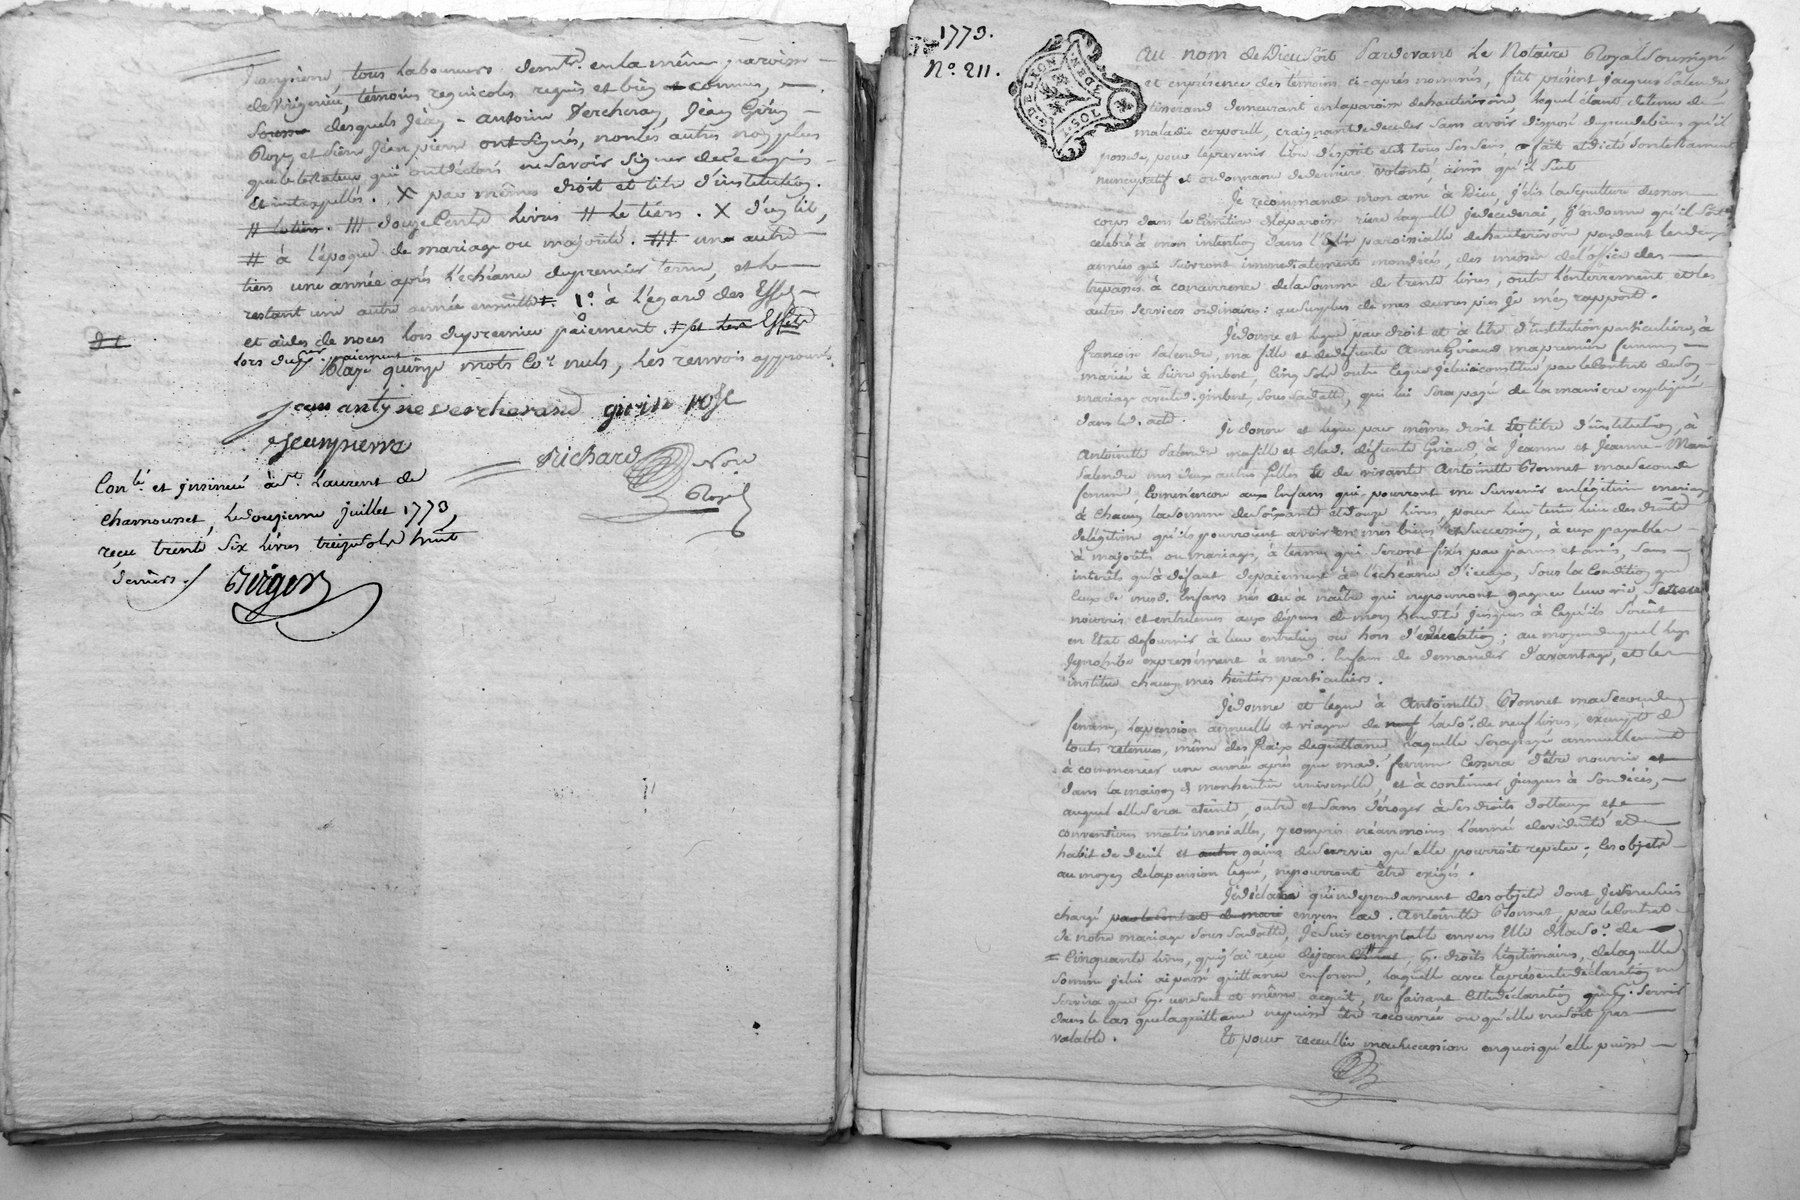 Jeanpierre tous laboureurs demt. en la même paroisse
de Virigneu, témoins requicolés requis et bien connus,
desquels Jean-antoine Vercherand, Jean Girin
Roze et Sieur Jeanpierre ont signés, non les autres non plus
que le testateur qui ont déclarés ne savoir signer de ce enquis
et interpellés. X par mêmes droit et titre d'institution.
# le tiers. /// douze cents livres # le tiers. X d'un lit,
# à l'époque de mariage ou majorité. ### un autre
tiers une année après l'échéance du premier terme, et le
restant une autre année ensuitte. 1° à l'égard des Effets
et aides de noces lors du premier paiement. # et les Effets
lors du per. paiement
Rayé quinze mots co.e nuls, les renvois approuvés.
Jean antoyne vercherand girin rose
Jeanpierre
Richard Nore
Royal
Conlé. et insinué à St. Laurent de
chamousset, le douzieme juillet 1773,
reçu trente six livres treize sols huit
deniers.
Berger
1773.
N.° 211.
G. DE LION
1. SOL
Au nom de Dieu soit Pardevant Le Notaire Royal soussigné
et en présence des témoins ci-après nommés, fut présent Jacques Salendre
tisserand demeurant en la paroisse de hauterivoire, lequel étant détenu de
maladie corporelle, craignant de déceder sans avoir disposé du peu de biens qu'il
possede, pour le prevenir libre d'esprit et de tous ses sens, a fait et dicté son testament
nuncupatif et ordonnance de derniere volonté, ainsi qu'il suit
Je recommande mon ame à Dieu, j'élis la sépulture de mon
corps dans le cimetiere de la paroisse riere laquelle je decederai, j'ordonne qu'il soit
celebré à mon intention dans l'Eglise paroissialle de hauterivoire pendant les deux
années qui suivront immediatement mon décès, des messes de l'office des
trepassés à concurrence de la somme de trente livres, outre l'enterrement et les
autres services ordinaires: au surplus de mes œuvres pies je m'en rapporte.
Je donne et legue par droit et à titre d'institution particuliere, à
françoise Salendre, ma fille et de defunte Anne Giraud ma premiere femme
mariée à Pierre Jinbert, cinq sols outre ce que je lui ai constitué par le Contrat de son
mariage avec led. Jinbert, sous sa datte, qui lui sera payé de la maniere expliquée
dans led. acte.
Je donne et legue par mêmes droit et titre d'institution, à
Antoinette Salendre ma fille et de lad. défunte Giraud, à Jeanne et Jeanne-Marie
Salendre mes deux autres filles et de vivante Antoinette Bonnet ma seconde
femme, comm'encore aux Enfans qui pourront me survenir en légitime mariage
à chacun la somme de soixante et douze livres, pour leur tenir lieu des droits
de légitime qu'ils pourroient avoir en mes biens et succession, à eux payable
à majorités ou mariages, à termes qui seront fixés par parens et amis, sans
interêts qu'à défaut de paiement à l'échéance d'iceux, sous la condition que
ceux de mesd. Enfans nés ou à naître qui ne pourront gagner leur vie, seront
nourris et entretenus aux dépens de mon héritier jusques à ce qu'ils soient
en Etat de fournir à leur entretien ou hors d'éducation; au moyen duquel legs
je prohibe expressément à mesd. Enfans de demander d'avantage, et les
institue chacun mes héritiers particuliers.
Je donne et legue à Antoinette Bonnet ma seconde
femme, la pension annuelle et viagere de neuf la so.e de neuf livres, exempte de
toutes retenues, même des fraix de quittance, laquelle sera payée annuellement
à commencer une année après que mad. femme cessera d'être nourrie et
dans la maison de mon héritier universelle, et à continuer jusques à son décès,
auquel elle sera éteinte, outre et sans déroger à ses droits dottaux et
conventions matrimonialles, y compris néanmoins l'année de viduité et
habit de deuil et autres gains de survie qu'elle pourroit repeter; les objets
au moyen de la pension leguée, ne pourront être exigés.
Je déclare qu'independamment des objets dont je me suis
chargé par le Contrat de mari envers lad. Antoinette Bonnet, par le Contrat
de notre mariage sous sa datte, je suis comptable envers Elle de la so.e de
# cinquante livres, que j'ai reçu de jean droits légitimaires, de laquelle
somme je lui ai passé quittance en forme, laquelle avec la présente déclaration ne
servira que d'un seul et même acquit, ne faisant cette déclaration que pr. servir
dans le cas que la quittance ne puisse être recouvrée ou qu'elle ne soit pas
valable.
Et pour recueillir ma succession en quoi qu'elle puisse